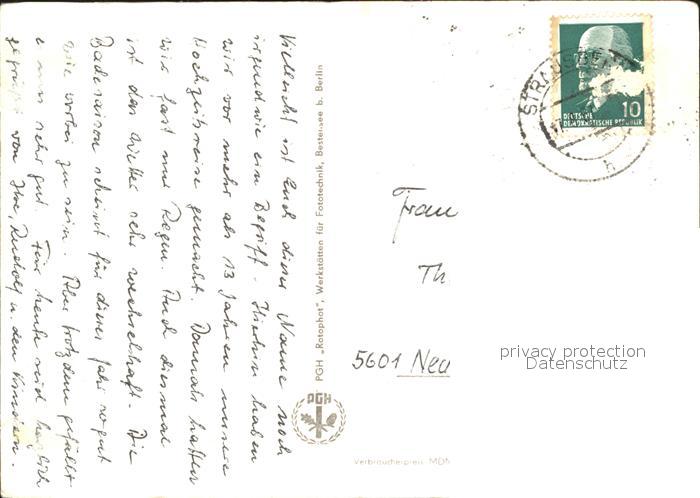 Vielleicht ist Euch dieser Name noch
irgendwie ein Begriff. Hierhin haben
wir vor mehr als 13 Jahren unsere
Hochzeitsreise gemacht. Damals hatten
wir fast nur Regen. Auch diesmal
ist das Wetter sehr wechselhaft. Die
Badesaison scheint für dieses Jahr so gut
wie vorbei zu sein. Aber trotzdem gefällt
es uns sehr gut. Für heute seid herzlich
gegrüßt von Ilse, Rudolf u. den Kindern.
PGH „Rotophot", Werkstätten für Fototechnik, Bestensee b. Berlin
PGH
Verbraucherpreis MDN
STRAUSBE
10
DEUTSCHE
DEMOKRATISCHE REPUBLIK
Frau
Th.
5601 Neu
privacy protection
Datenschutz